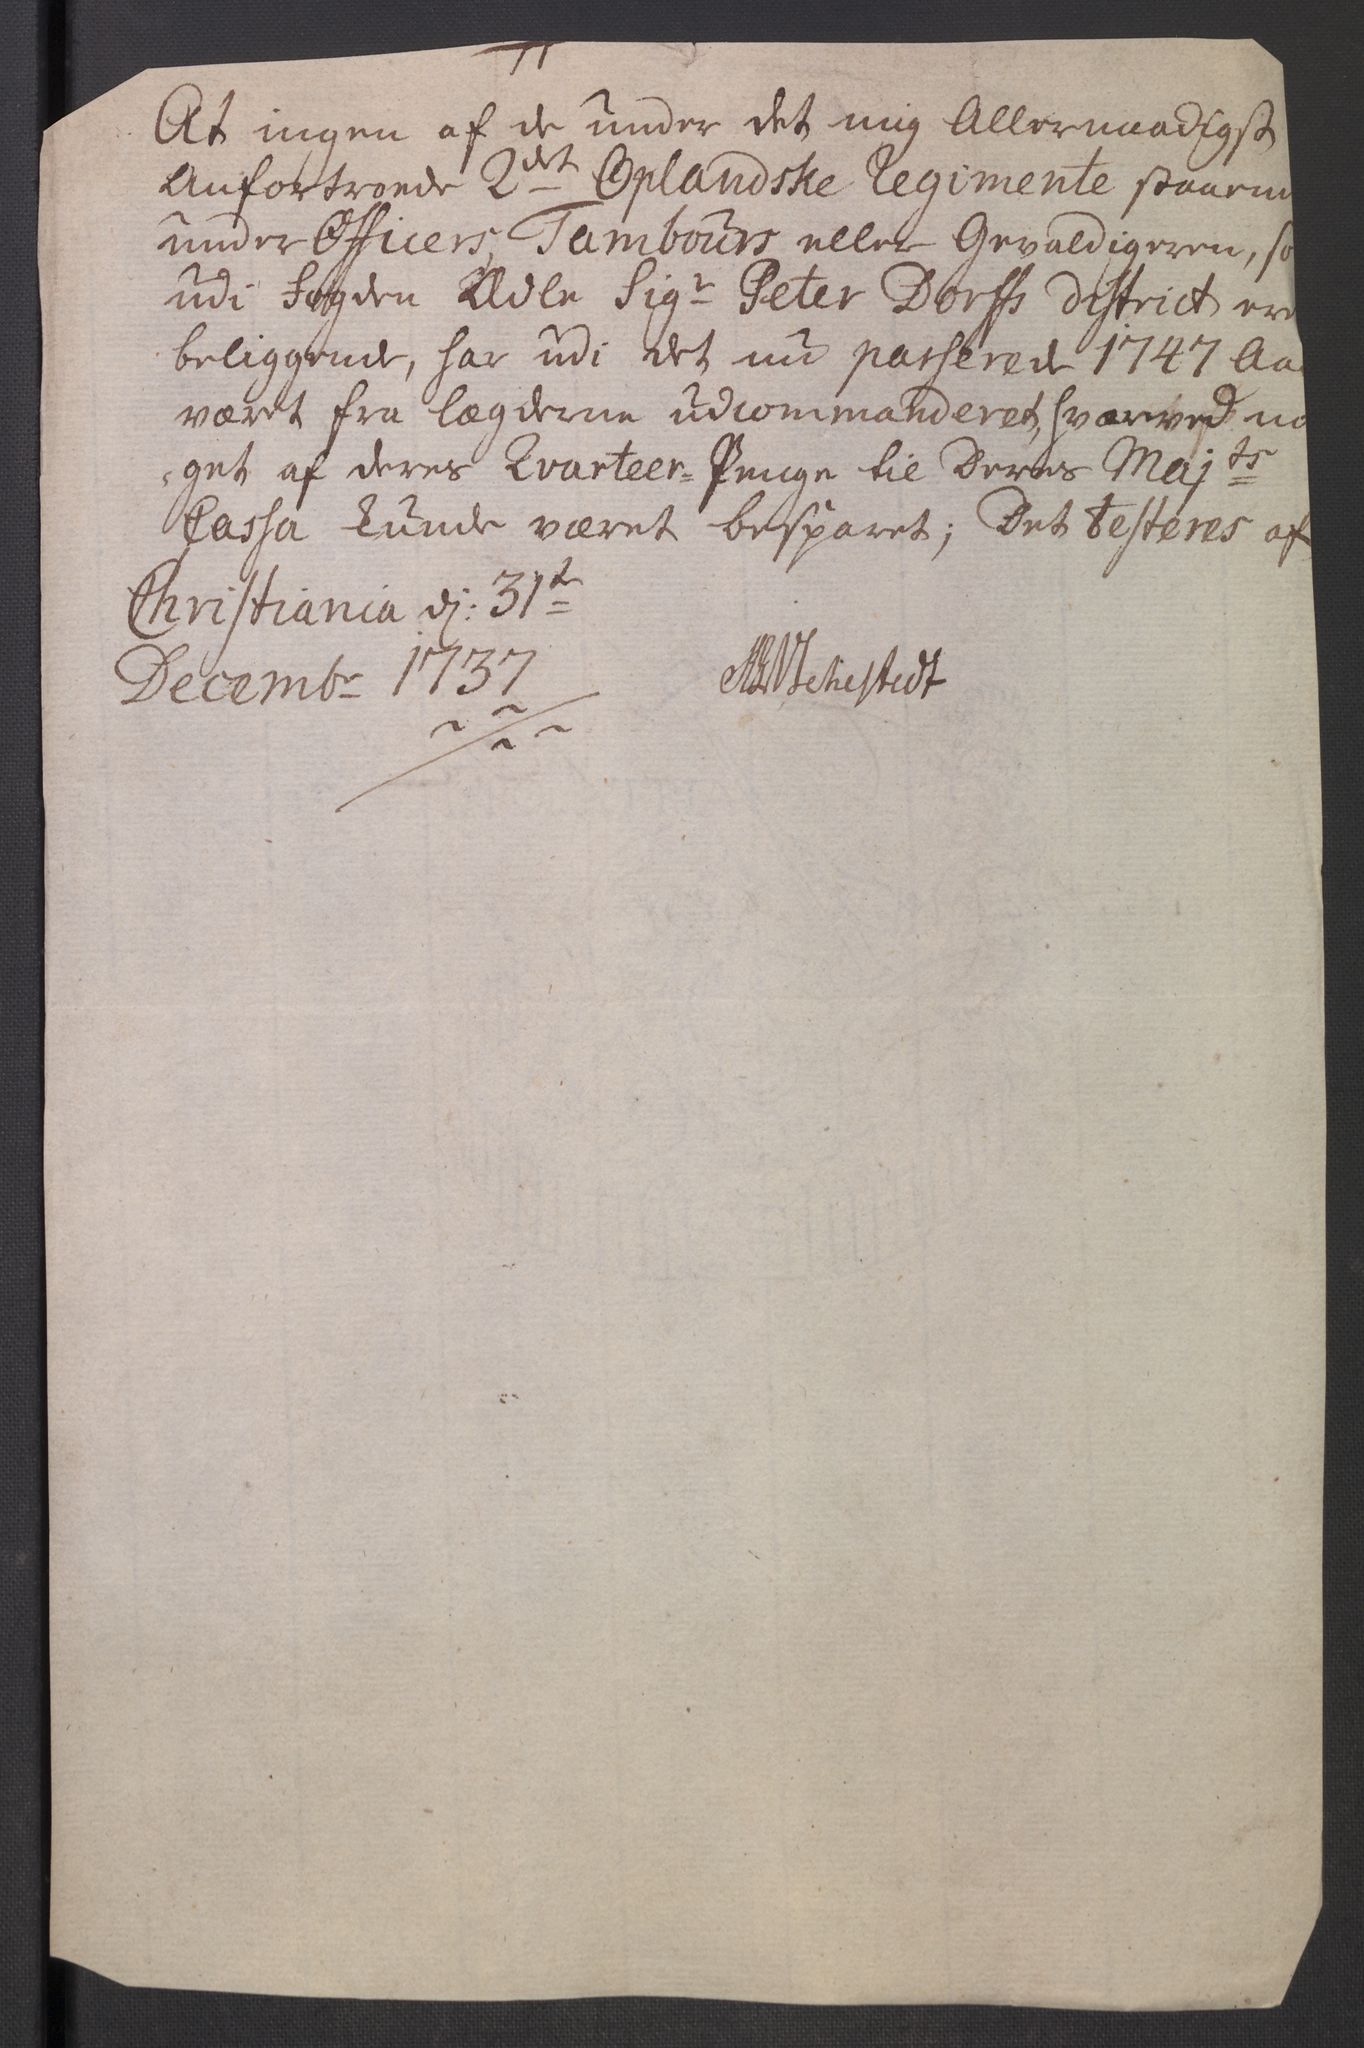 At ingen af de under det mig Allernaadigst
Anfortroede 2det Oplandske Regimente staaen
under Officers, Tambours eller Gevaldigeren, so
udi Fogden Ædle Sigr Peter Dorffs District ere
beliggende, har udi det nu passerede 1747 Aa
været fra Lægderne udcommanderet, hvorved no
get af deres Qvarteer-Penge til Deres Majts
Cassa kunde været besparet; Det testeres af
Christiania dj: 31te
Decembr 1737
Sehestedt